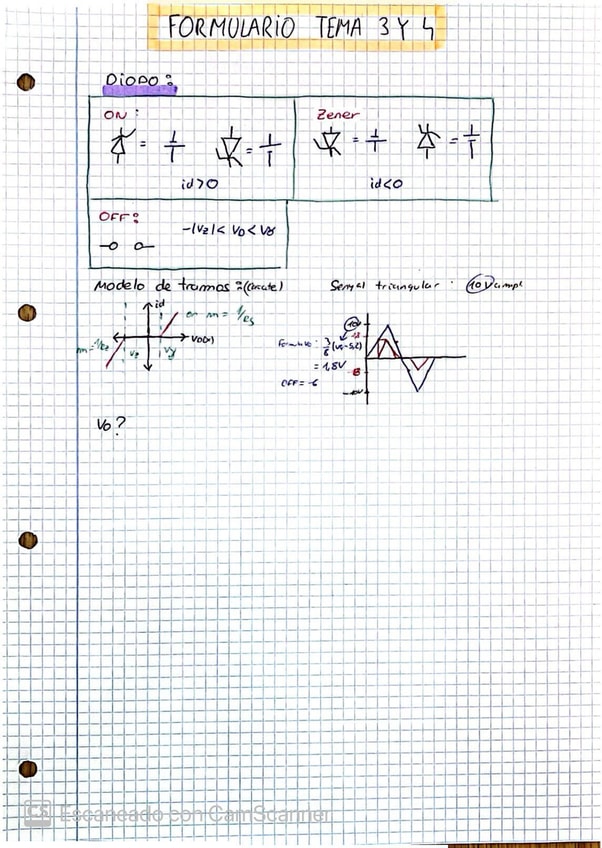 FORMULARIO TEMA 3 Y 4
DIODO:
ON:
id>0
Zener
id<0
OFF:
-|Vz| < VD < Vγ
Modelo de tramos:
id
on m = 1/
VD(V)
Vz
Vγ
Señal triangular: 10V ampl
10V
= 1,8V
OFF = -6
-10V
Vo?
CS Escaneado con CamScanner